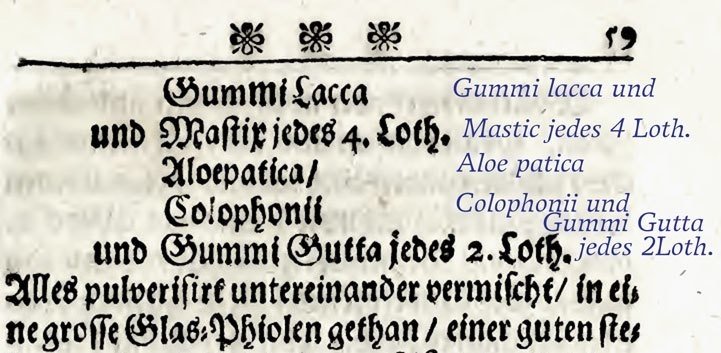 59
Gummi Lacca
und Mastix jedes 4. Loth.
Aloepatica/
Colophonii
und Gummi Gutta jedes 2. Loth.
Alles pulverisirt untereinander vermischt/ in ei-
ne grosse Glas-Phiolen gethan / einer guten ste-
Gummi lacca und
Mastic jedes 4 Loth.
Aloe patica
Colophonii und
Gummi Gutta
jedes 2Loth.